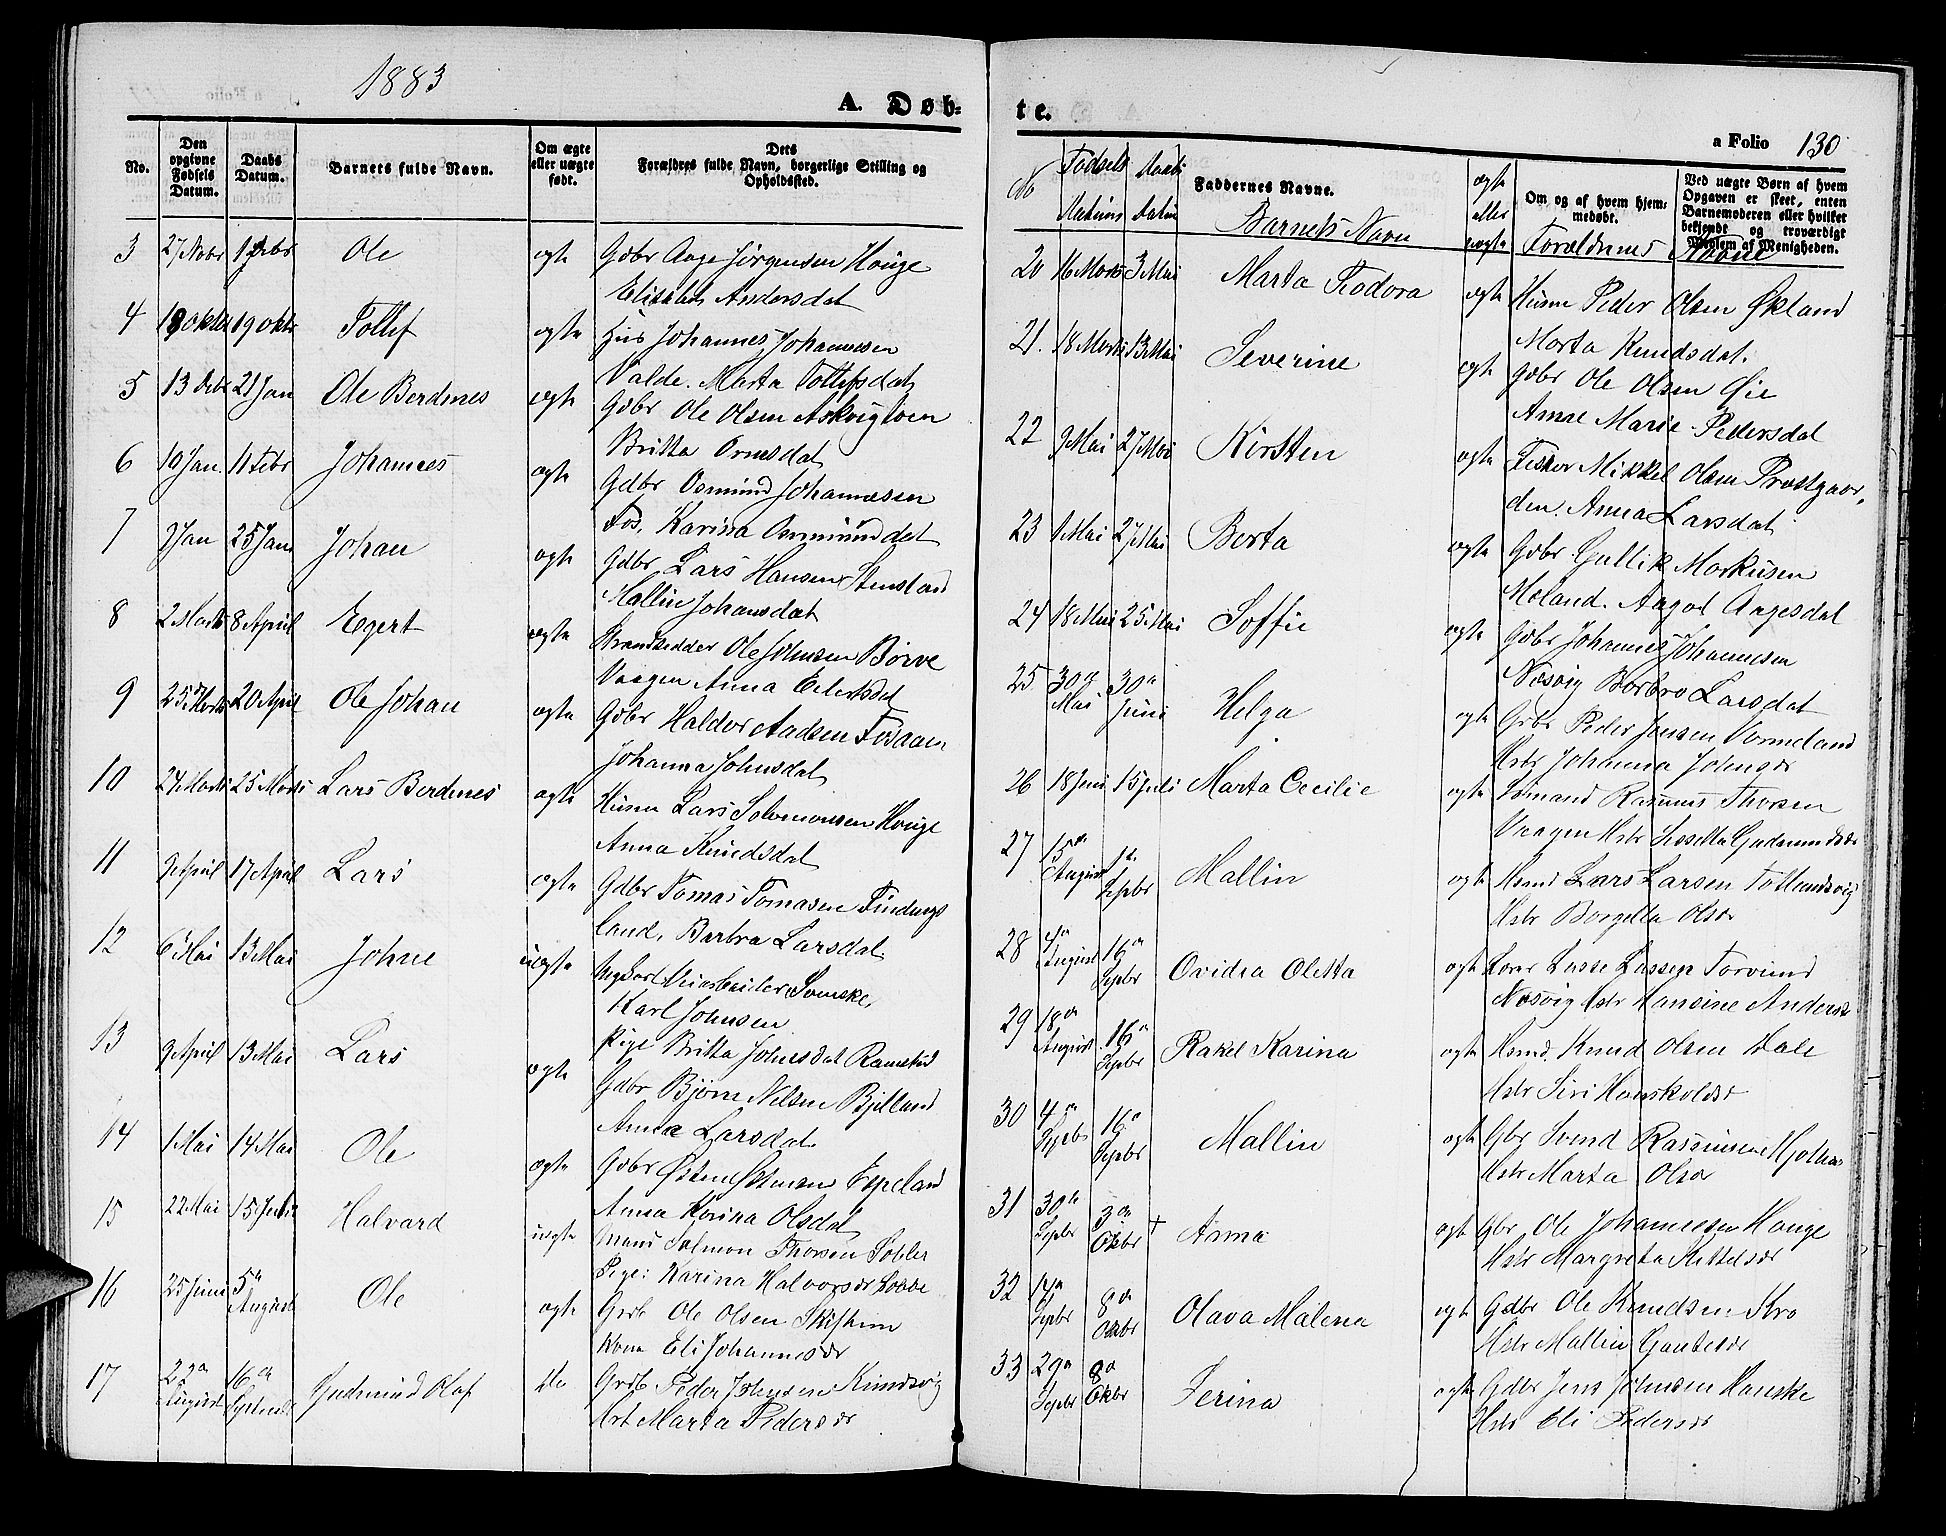 1883
A. Døb-
No.
Den opgivne Fødsels Datum.
Daabs Datum.
Barnets fulde Navn.
Om ægte eller uægte født.
Dets Forældres fulde Navn, borgerlige Stilling og Opholdssted.
3 27 Novbr Ole ægte Gdbr Aage Jørgensen Houge
Elisabet Andersdat
4 19 oktbr Tollef ægte Hus Johannes Johannesen
Valde. Marta Tollefsdat
5 13 Decbr 21 Jan Ole Berdines ægte Gdbr Ole Olsen Askvigloen
Britta Ormsdat
6 10 Jan. 11 Febr Johannes ægte Gdbr Osmund Johannesen
Fos. Karina Osmundsdat
7 Jan 25 Jan Johan ægte Gdbr Lars Hansen Stensland
Mallin Johansdat
8 2 Marts 8 April Egert ægte Strandsedder Ole Johnsen Børve
Vaagen Anna Eilertsdat
9 25 Marts 20 April Ole Johan ægte Gdbr Haldor Aadsen Fosaaen
Johanna Johnsdat
10 24 Marts 25 Marts Lars Berdines ægte Husm Lars Solomonsen Houge
Anna Knudsdat
11 9 April 17 April Lars ægte Gdbr Tomas Tomasen Tindings
land, Barbra Larsdat
12 6 Mai 13 Mai Johne uægte Svenske,
Karl Johnsen
Pige Britta Johnsdat Ramstad
13 9 April 13 Mai Lars ægte Gdbr Bjørn Nelsen Bjelland
Anna Larsdat
14 1 Mai 14 Mai Ole ægte Gdbr Østen Østensen Espeland
Anna Karina Olsdat
15 22 Mai 15 Juli Halvard uægte Salmon Thorsen
Pige: Karina Halvorsdr
16 25 Juni 5te August Ole ægte Grdb Ole Olsen Skiftun
Kone Eli Johannesdr
17 22de August 16de Septembr Gudmund Olaf do Grdb Peder Johnsen Kindsvig
Hst Marta Pedersdr
te.
a Folio 130
No Fødsels Datum Daabs datum
Faddernes Navne.
Barnets Navn
ægte eller uægte
Om og af hvem hjemmedøbt.
Forældrenes Navne
Ved uægte Børn af hvem Opgaven er skeet, enten Barnemoderen eller hvilket bekjendt og troværdigt Medlem af Menigheden.
20 16 Marts 3 Mai Marta Todora ægte Husm Peder Olsen Økland
Marta Knudsdat.
21. 18 Marts 13 Mai Severine ægte Gdbr Ole Olsen Øie
Anne Marie Pedersdat
22 9 Mai 27 Mai Kirsten ægte Fisker Mikkel Olsen Præstgaar-
den. Anna Larsdat
23 Mai 27 Mai Berta ægte Gdbr Gullik Markusen
Moland. Aagot Aagesdat
24 18 Mai 25 Mai Soffie ægte Gdbr Johannes Johannesen
Næsvig Barbro Larsdat
25 30te Mai 30te Juni Helga ægte Grbr Peder Jonsen Vormeland
Hstr Johanna Johnsdr
26 18 Juni 15 Juli Marta Cecilie ægte Sømand Rasmus Thorsen
Vaagen Hstr Sissella Gudmundsdr
27 15de August Septbr Mallin ægte Hsmd Lars Larsen Totlandsvig
Hstr Borgella Olsdr
28 August 16de Septbr Ovidia Oletta ægte Lærer Lasse Lassen Torvund
Næsvig Hstr Hansine Anders
29 18de August 16de Septbr Rakel Karina ægte Hsmd. Knud Olsen Hale
Hstr Siri Hauskoldsdr
30 4de Septbr 16de Septbr Mallin ægte Gbr Svend Rasmusen Mjølhus
Hstr Marta Olsdr
31 30te Septbr 3de Oktbr + Anna ægte Gbr Ole Johannesen Houge
Hstr Margreta Kittelsdr
32 Septbr 8de Oktbr Olava Malena ægte Gdbr Ole Knudsen Kro
Hstr Mallin Gautesdr
33 29de Septbr 8de Oktbr Serina ægte Gdbr Jens Johnsen Hauske
Hstr Eli Pedersdr